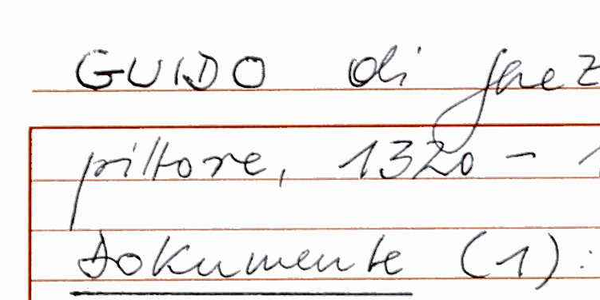 GUIDO di
pittore, 1320 - 1
Dokumente (1):